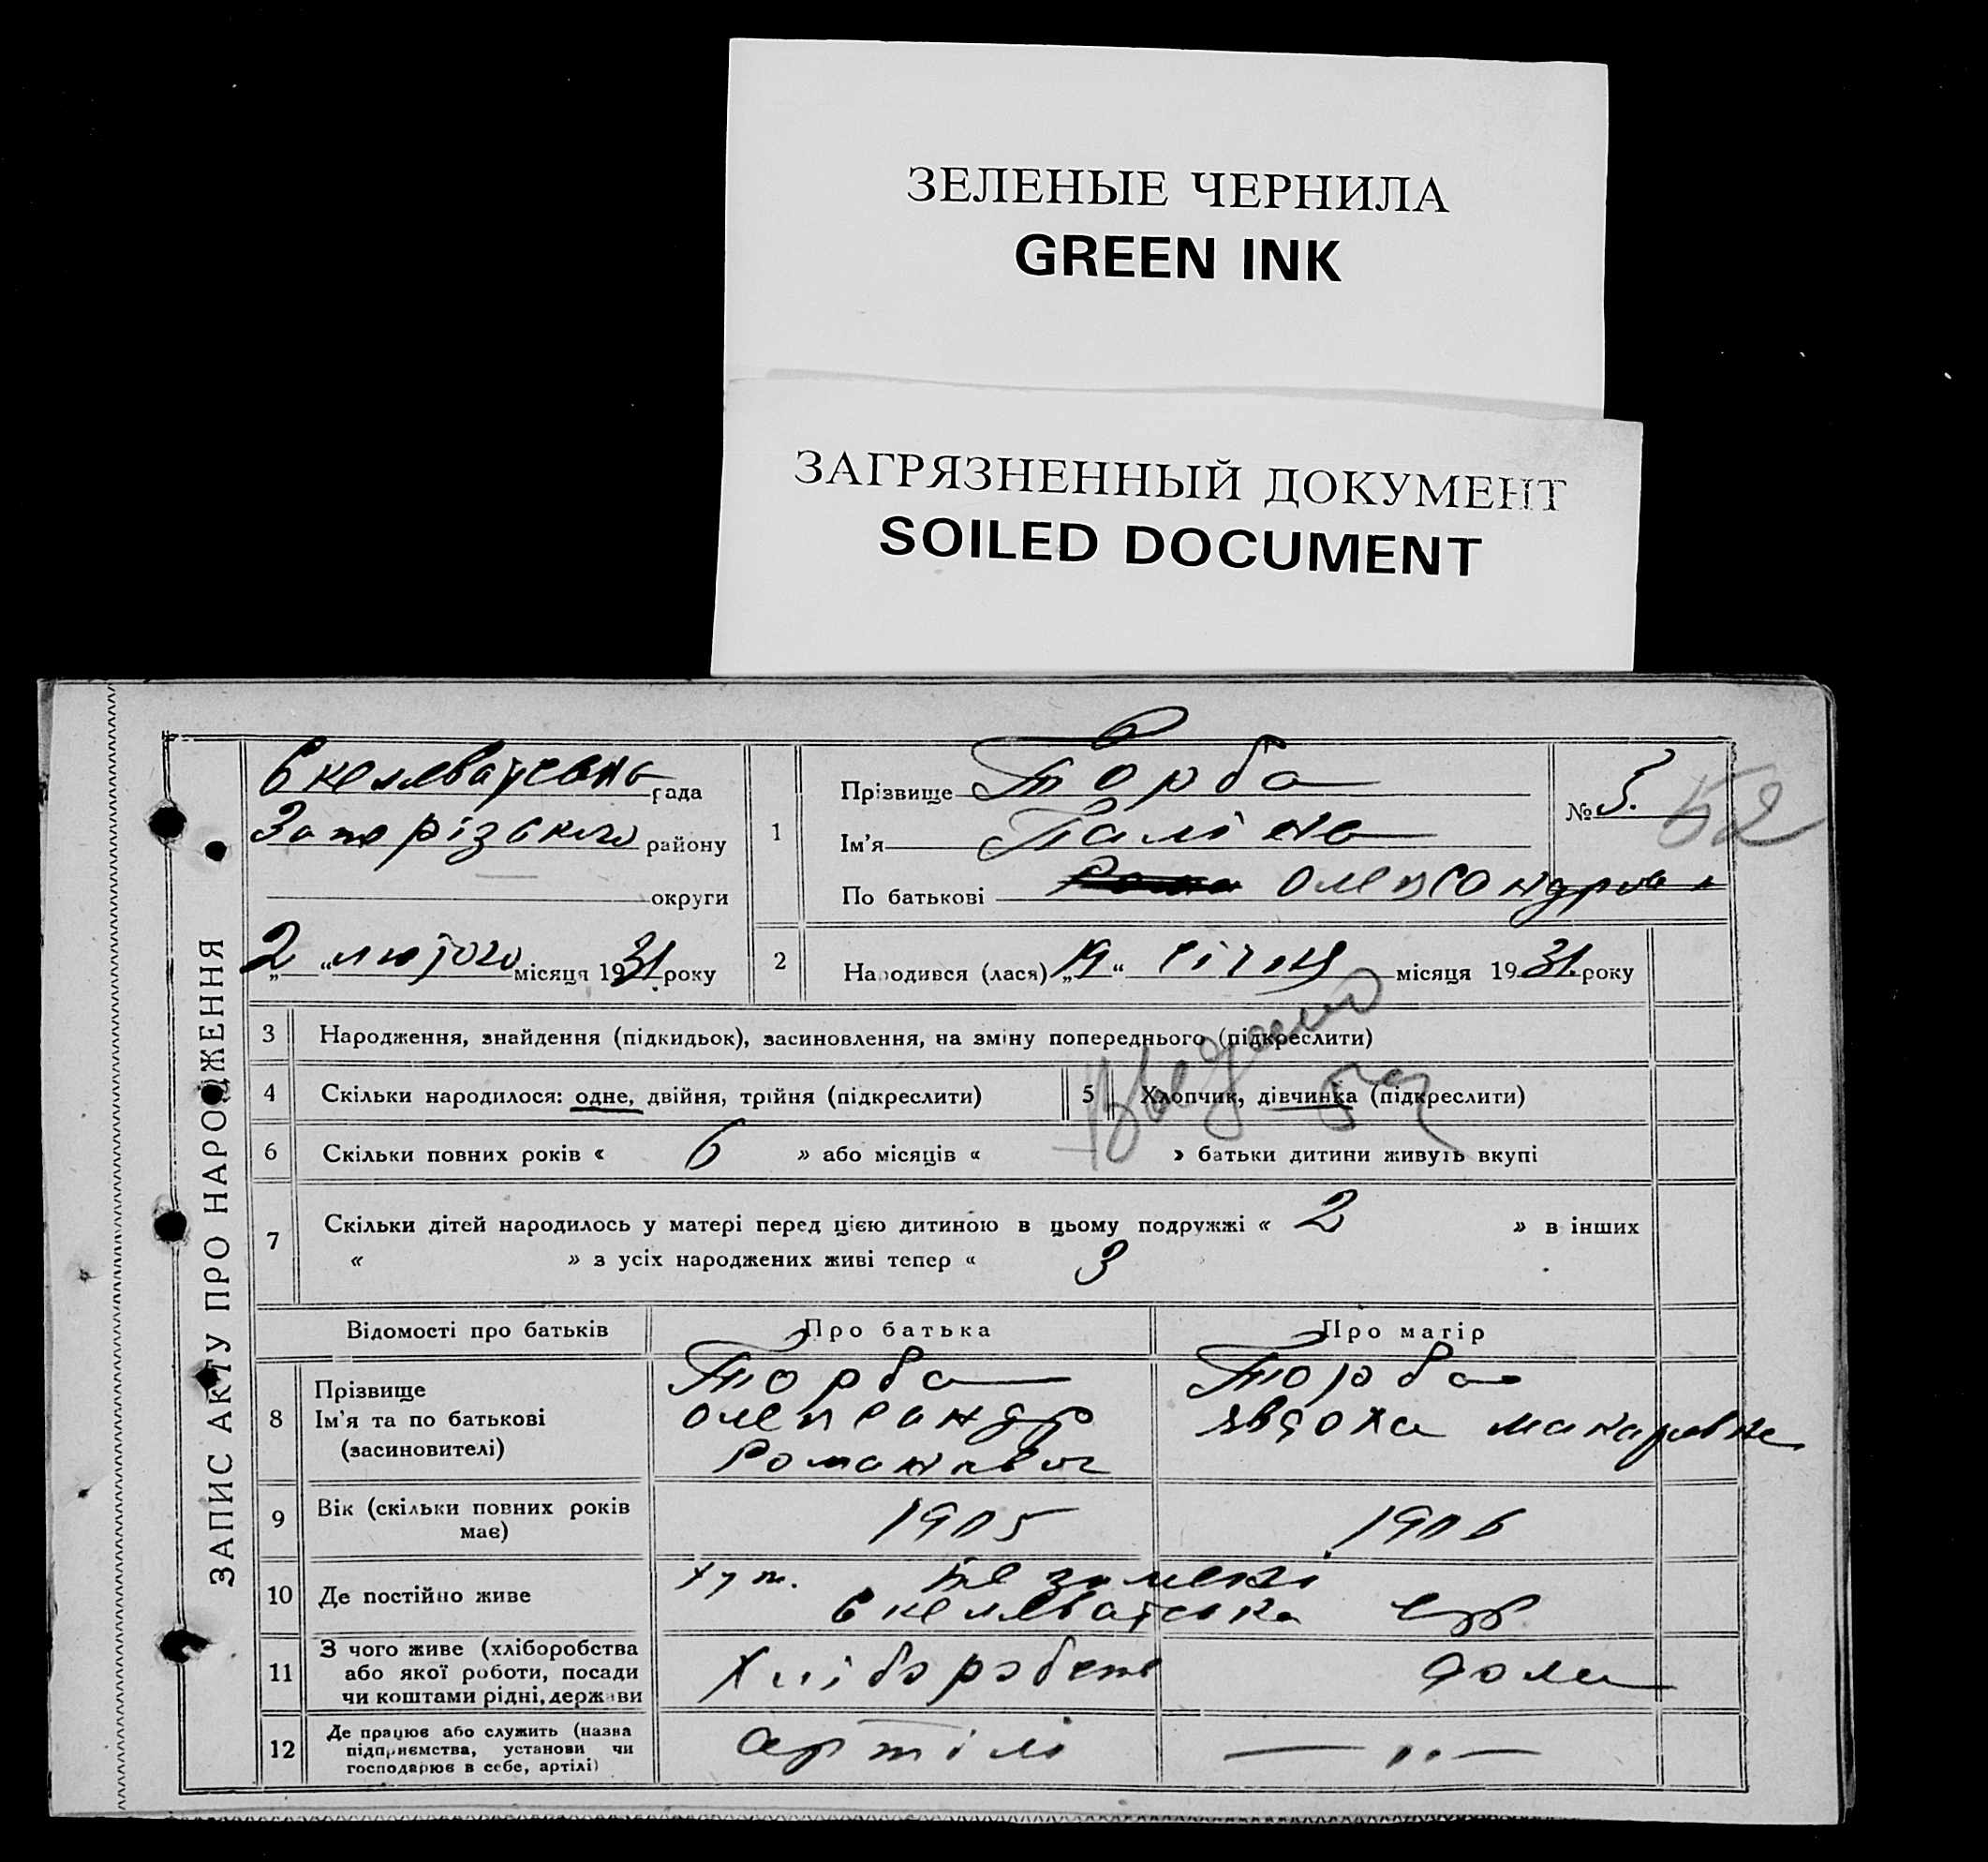 ЗЕЛЕНЫЕ ЧЕРНИЛА
GREEN INK
ЗАГРЯЗНЕННЫЙ ДОКУМЕНТ
SOILED DOCUMENT
ЗАПИС АКТУ ПРО НАРОДЖЕННЯ
рада
району
округи
„2“ лютого місяця 1931 року
1
Прізвище Торба
Ім'я
По батькові Олександр
№ 3.
52
2
Народився (лася) „19“ січня місяця 1931. року
3 Народження, знайдення (підкидьок), засиновлення, на зміну попереднього (підкреслити)
4 Скільки народилося: одне, двійня, трійня (підкреслити) 5 Хлопчик, дівчинка (підкреслити)
6 Скільки повних років « 6 » або місяців « » батьки дитини живуть вкупі
7 Скільки дітей народилось у матері перед цією дитиною в цьому подружжі « 2 » в інших
« » з усіх народжених живі тепер « 3
Відомості про батьків Про батька Про матір
8 Прізвище Торба Торба
Ім'я та по батькові Олександр Явдоха Макаровна
(засиновителі) Романович
9 Вік (скільки повних років має) 1905 1906
10 Де постійно живе хут.
11 З чого живе (хліборобства або якої роботи, посади чи коштами рідні, держави дома
12 Де працює або служить (назва підприємства, установи чи господарює в себе, артілі) артілі — „ —